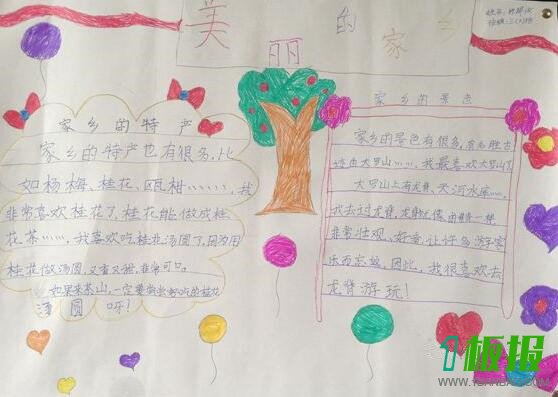 美丽的家乡
家乡的特产
家乡的特产也有很多,比
如杨梅、桂花、瓯柑……,我
非常喜欢桂花了,桂花能做成桂
花茶……,我喜欢吃桂花汤圆了,因为用
桂花做汤圆,又香又甜,非常可口。
如果来茶山,一定要尝尝好吃的桂花
汤圆呀!
家乡的景色
家乡的景色有很多,有名胜古
迹由大罗山……,我最喜欢大罗山了
大罗山上有龙脊、天河水库……,
我去过龙脊,龙脊就像由一样,
非常壮观、好奇,让许多游客
乐而忘返,因此,我很喜欢去
龙脊游玩!
1板报